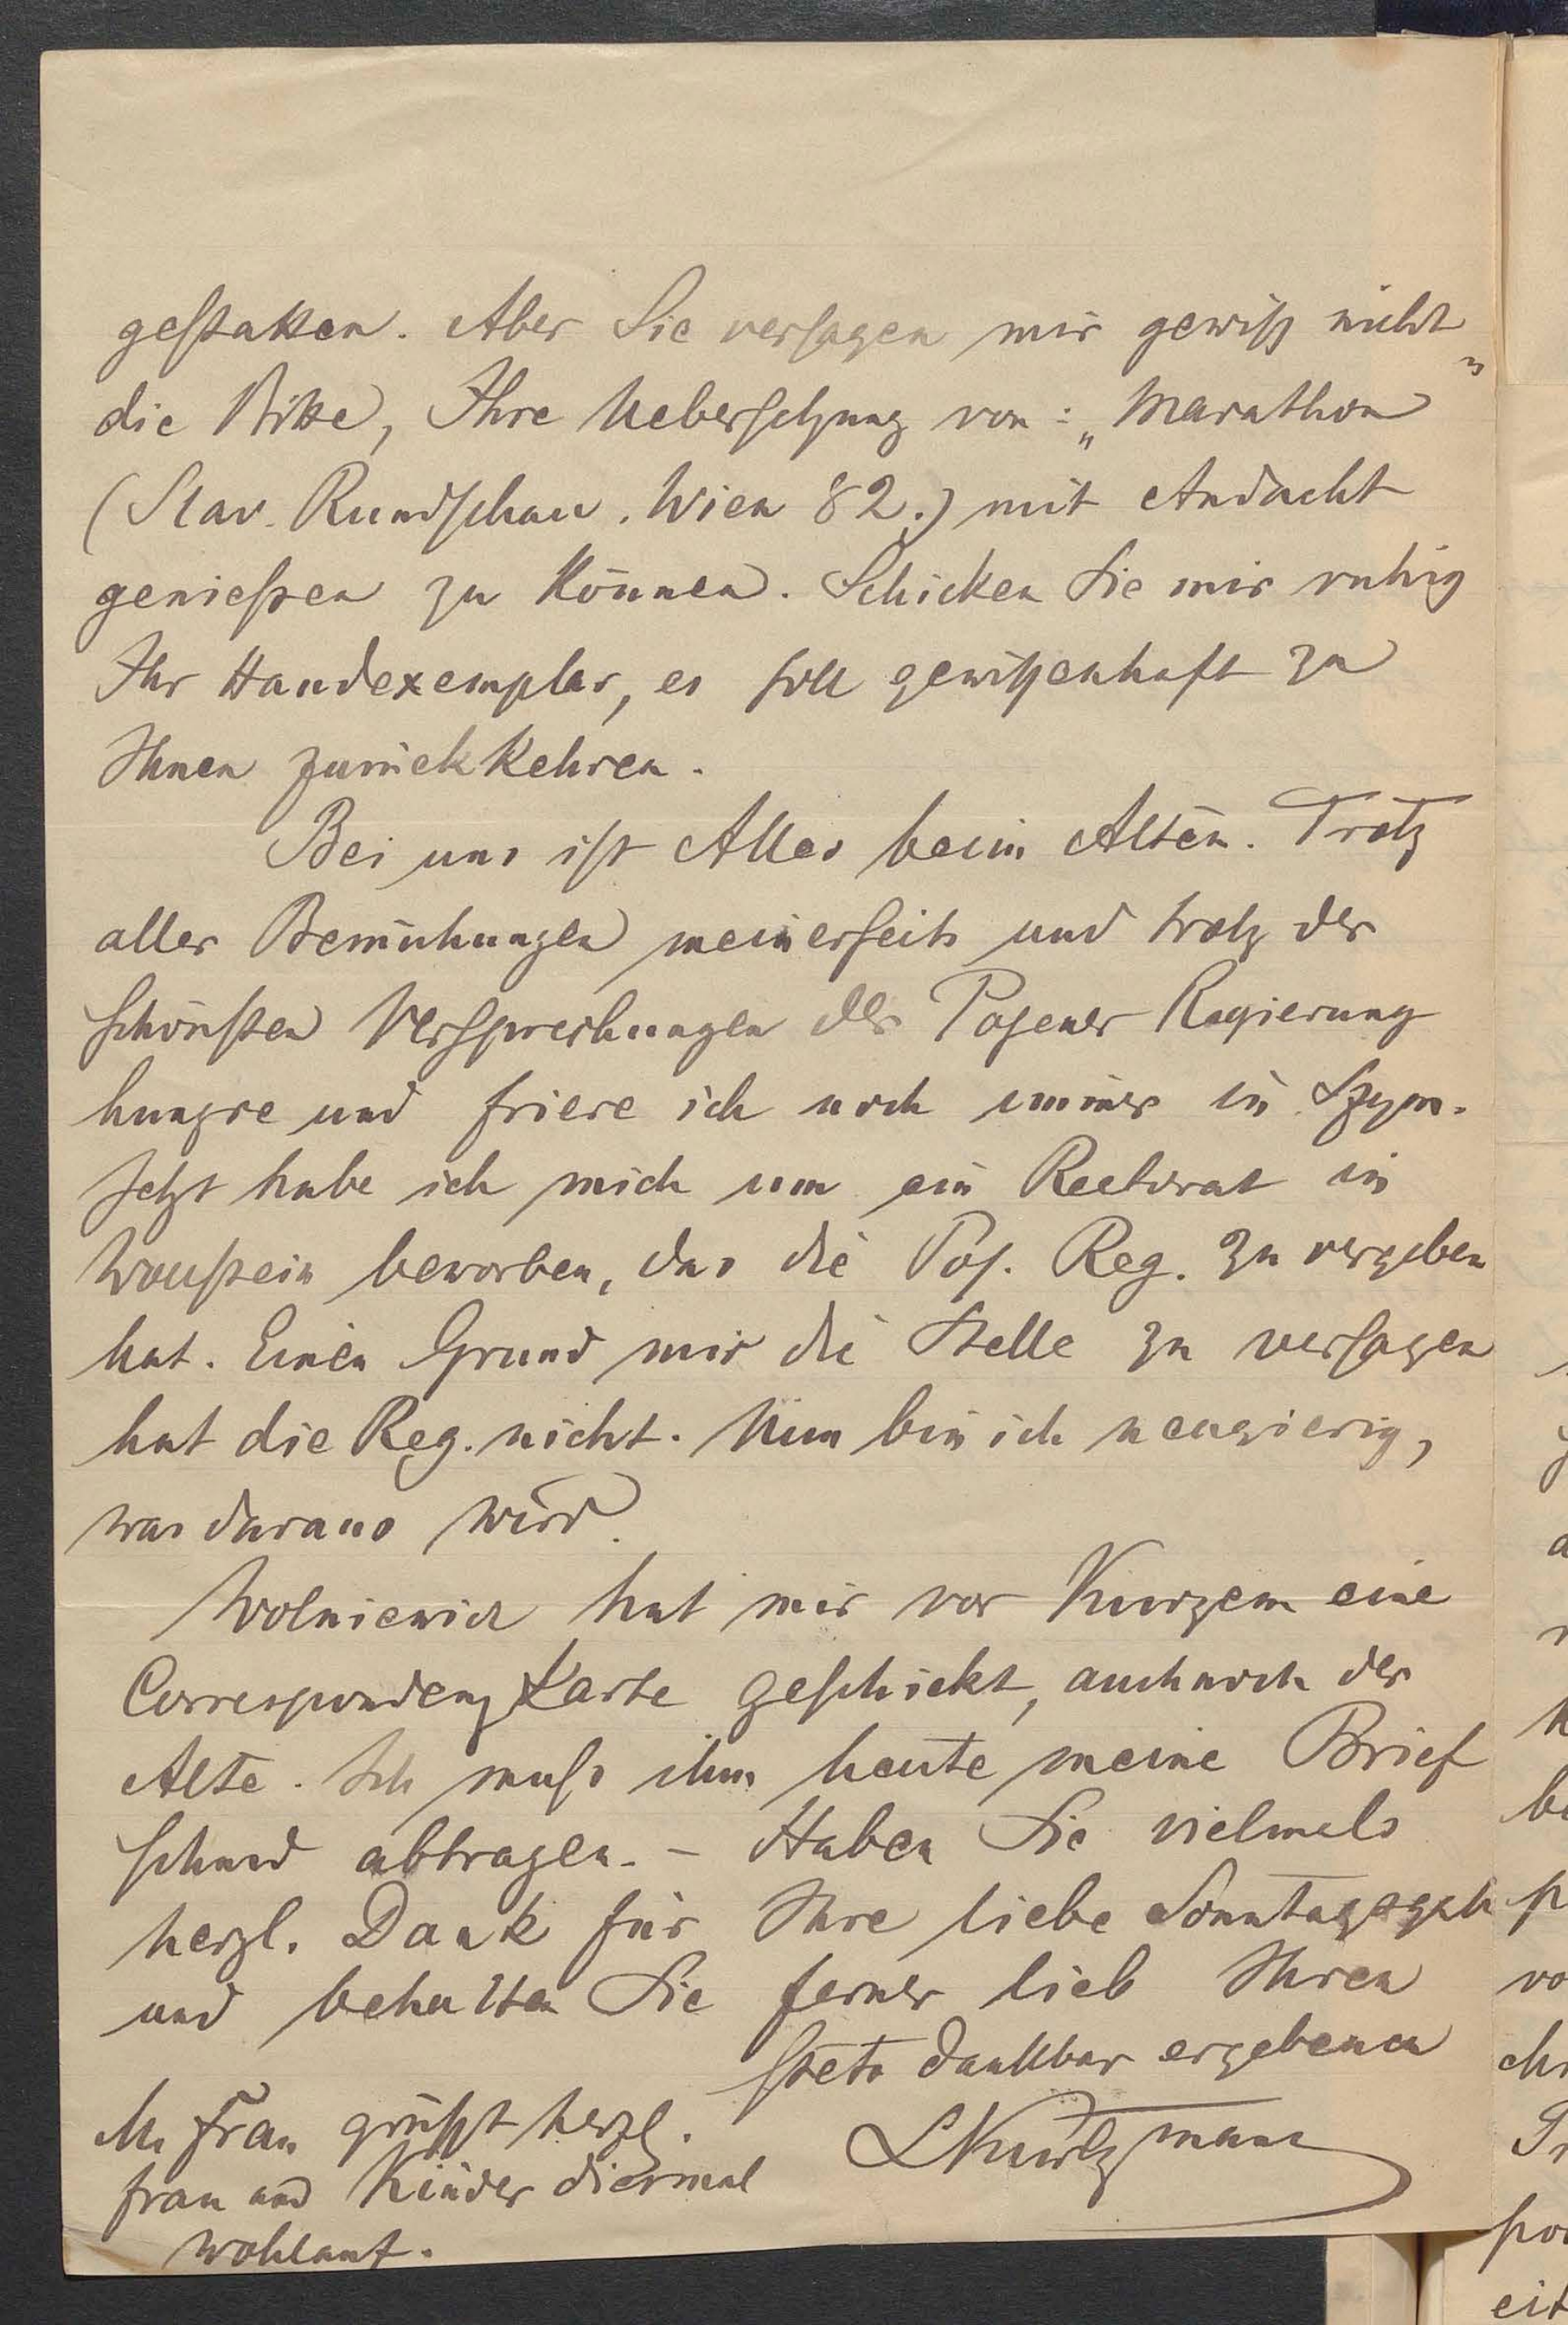 gestatten. Aber Sie versagen mir gewiß nicht
die Bitte, Ihre Uebersetzung von: „Marathon“
(Slav. Rundschau. Wien 82.) mit Andacht
genießen zu können. Schicken Sie mir ruhig
Ihr Handexemplar, es soll gewissenhaft zu
Ihnen zurückkehren.
Bei uns ist Alles beim Alten. Trotz
aller Bemühungen meinerseits und trotz der
schönsten Versprechungen der Posener Regierung
hungre und friere ich noch immer in
Jetzt habe ich mich um ein Rectorat in
beworben, das die Pos. Reg. zu vergeben
hat. Einen Grund mir die Stelle zu versagen
hat die Reg. nicht. Nun bin ich neugierig,
was daraus wird.
Wolniewicz hat mir vor Kurzem eine
Correspondenzkarte geschickt, auch noch der
Alte. Ich muss ihm heute meine Brief
schuld abtragen. – Haben Sie vielmals
herzl. Dank für Ihre liebe
und behalten Sie ferner lieb Ihren
stets dankbar ergebenen
LKurtzmann
M. Frau grüßt herzl.
Frau und Kinder diesmal
wohlauf.